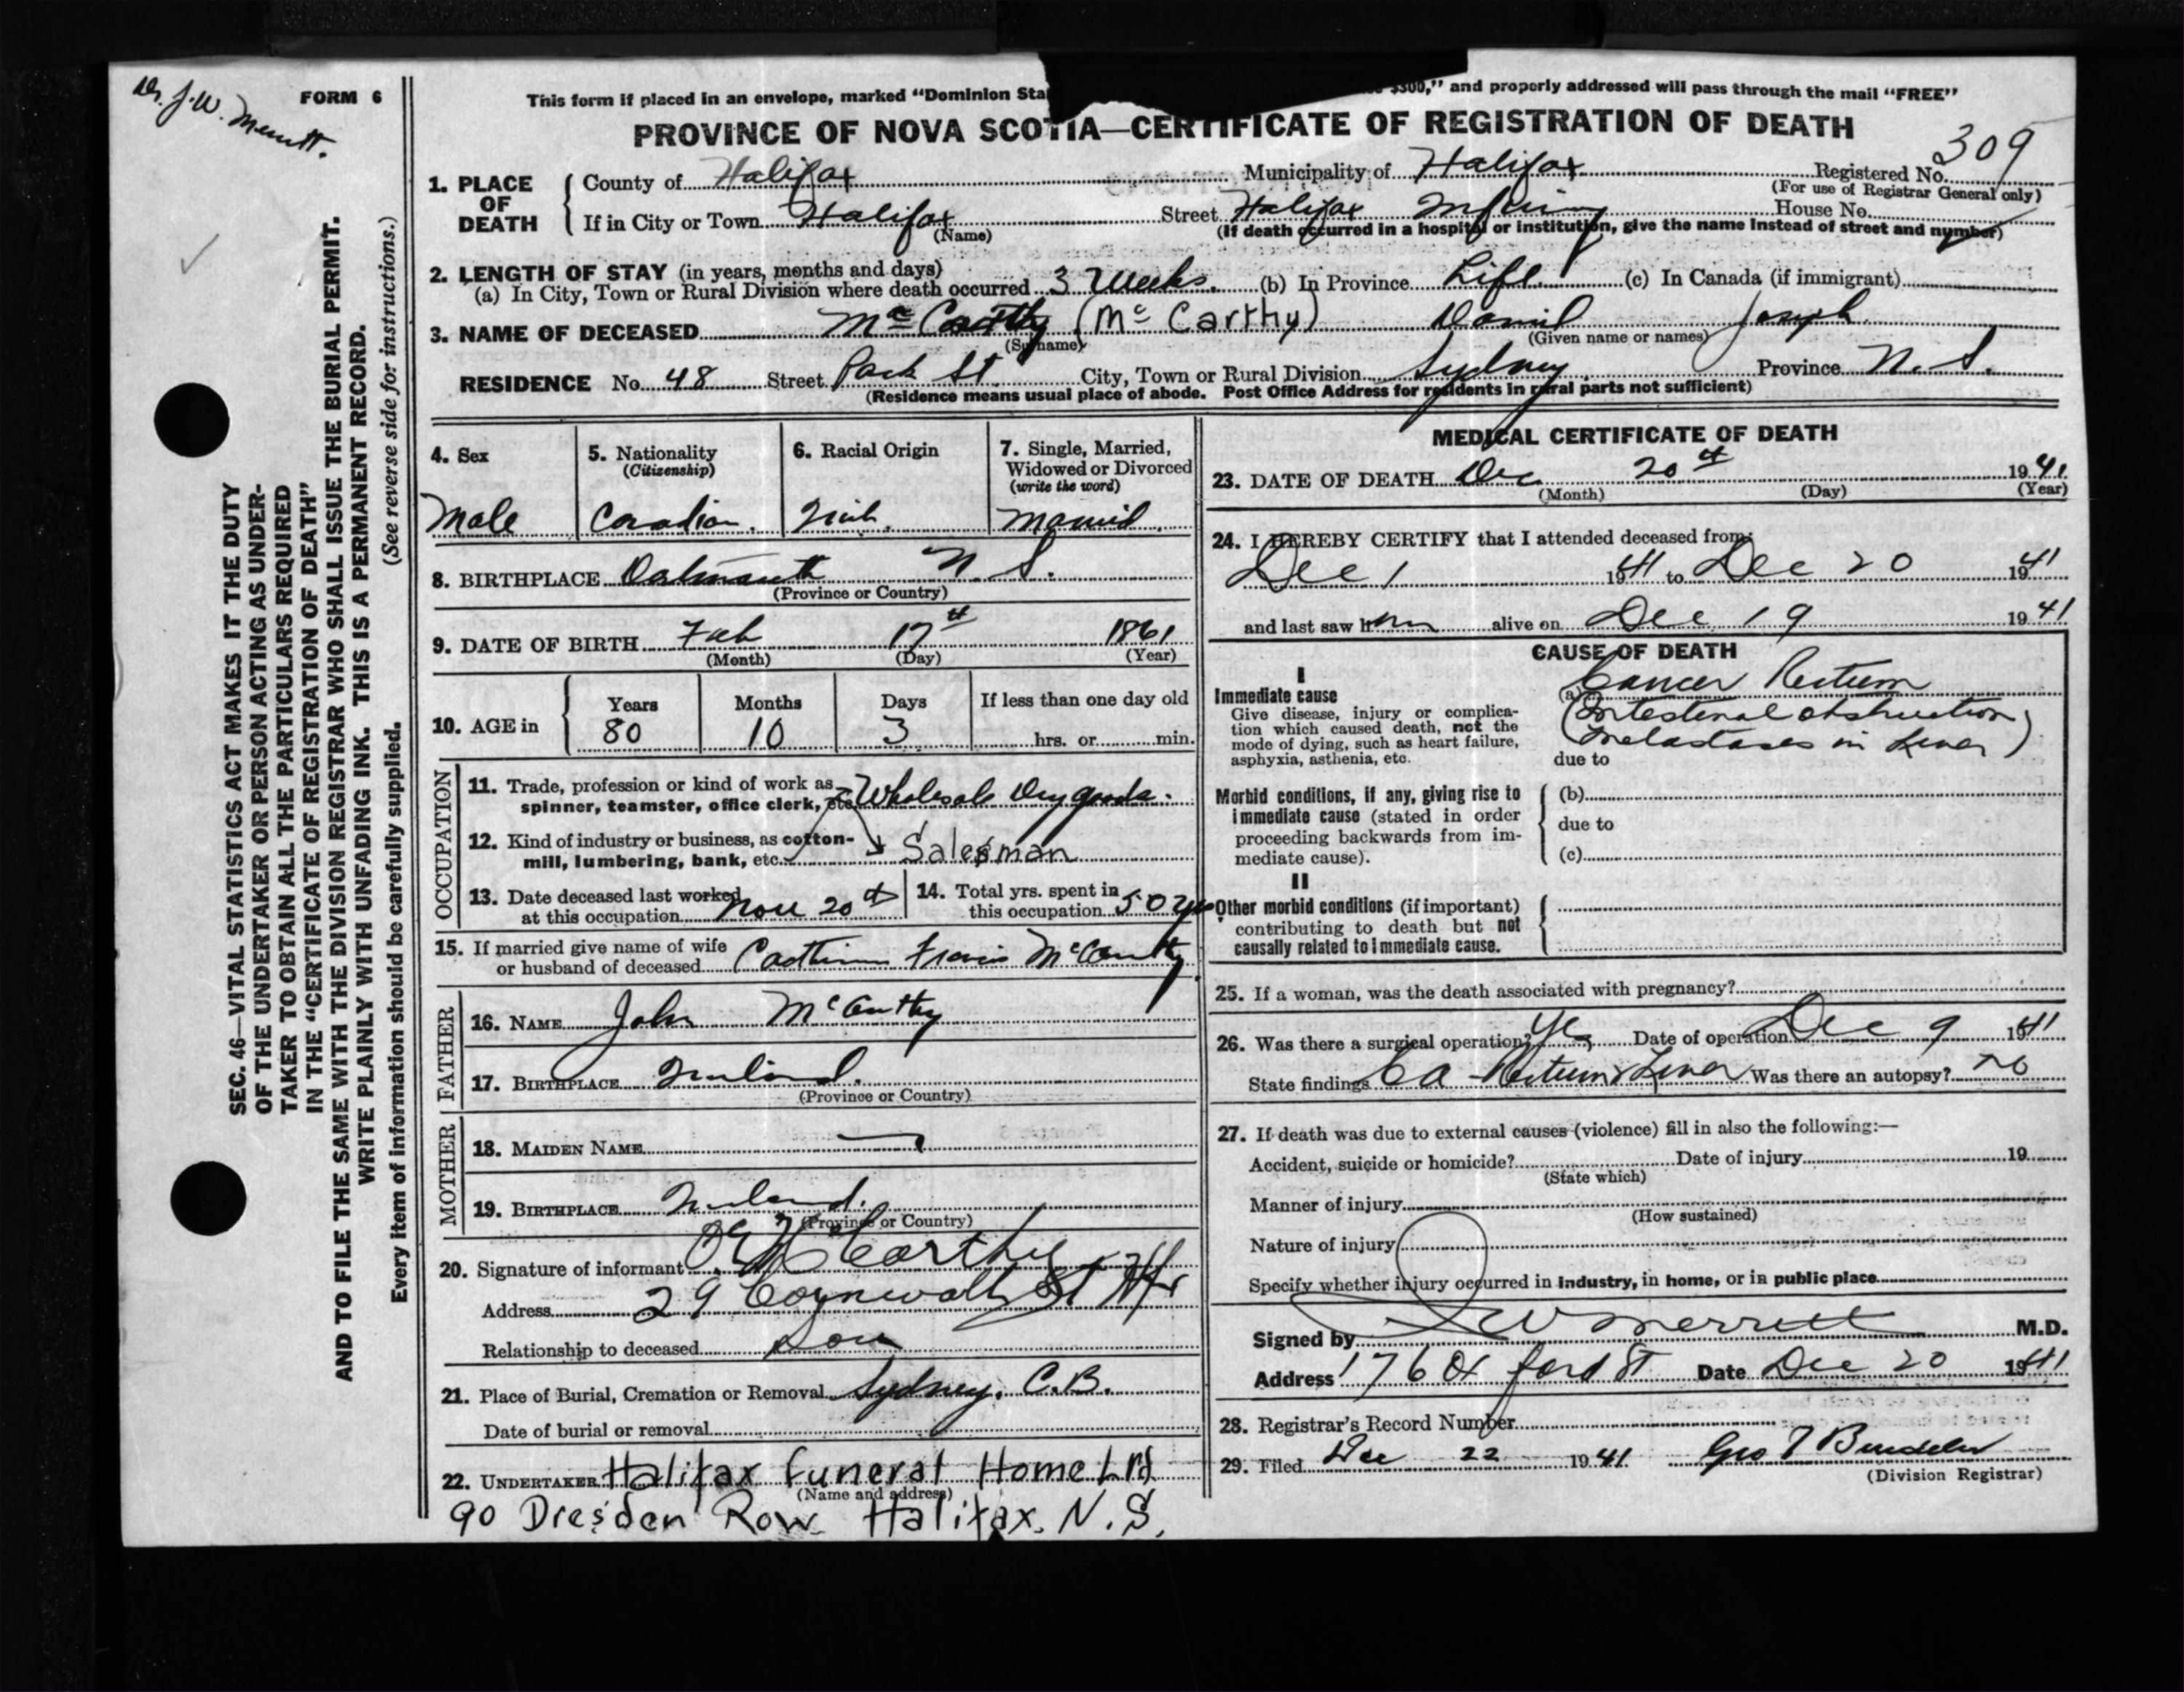 Dr. J.W. Merritt.
FORM 6
SEC. 46—VITAL STATISTICS ACT MAKES IT THE DUTY
OF THE UNDERTAKER OR PERSON ACTING AS UNDER-
TAKER TO OBTAIN ALL THE PARTICULARS REQUIRED
IN THE "CERTIFICATE OF REGISTRATION OF DEATH"
AND TO FILE THE SAME WITH THE DIVISION REGISTRAR WHO SHALL ISSUE THE BURIAL PERMIT.
WRITE PLAINLY WITH UNFADING INK. THIS IS A PERMANENT RECORD.
(See reverse side for instructions.)
Every item of information should be carefully supplied.
This form if placed in an envelope, marked "Dominion Sta $300," and properly addressed will pass through the mail "FREE"
PROVINCE OF NOVA SCOTIA—CERTIFICATE OF REGISTRATION OF DEATH
309
1. PLACE OF DEATH
County of Halifax Municipality of Halifax Registered No.
(For use of Registrar General only)
If in City or Town Halifax Street Halifax Infirmy House No.
(Name) (If death occurred in a hospital or institution, give the name instead of street and number)
2. LENGTH OF STAY (in years, months and days)
(a) In City, Town or Rural Division where death occurred 3 Weeks. (b) In Province Life. (c) In Canada (if immigrant)
3. NAME OF DECEASED McCarthy (McCarthy) Daniel Joseph
(Surname) (Given name or names)
RESIDENCE No. 48 Street Park St. City, Town or Rural Division Sydney Province N. S.
(Residence means usual place of abode. Post Office Address for residents in rural parts not sufficient)
4. Sex
Male
5. Nationality
(Citizenship)
Canadian.
6. Racial Origin
Irish.
7. Single, Married,
Widowed or Divorced
(write the word)
Married.
8. BIRTHPLACE Dartmouth N. S.
(Province or Country)
9. DATE OF BIRTH Feb 17th 1861
(Month) (Day) (Year)
10. AGE in
Years Months Days If less than one day old
80 10 3 hrs. or min.
OCCUPATION
11. Trade, profession or kind of work as
spinner, teamster, office clerk, etc. Wholesale Dry goods.
12. Kind of industry or business, as cotton-
mill, lumbering, bank, etc. Salesman
13. Date deceased last worked
at this occupation Nov 20th
14. Total yrs. spent in
this occupation 50 yrs
15. If married give name of wife
or husband of deceased Francis McCarthy
FATHER
16. NAME John McCarthy
17. BIRTHPLACE Ireland.
(Province or Country)
MOTHER
18. MAIDEN NAME —
19. BIRTHPLACE Ireland.
(Province or Country)
20. Signature of informant McCarthy
Address 29 Cornwall St Hfx
Relationship to deceased Son
21. Place of Burial, Cremation or Removal Sydney, C.B.
Date of burial or removal
22. UNDERTAKER Halifax Funeral Home Ltd
(Name and address)
90 Dresden Row Halifax, N.S.
MEDICAL CERTIFICATE OF DEATH
23. DATE OF DEATH Dec 20th 1941
(Month) (Day) (Year)
24. I HEREBY CERTIFY that I attended deceased from:
Dec 1 1941 to Dec 20 1941
and last saw him alive on Dec 19 1941
CAUSE OF DEATH
I
Immediate cause
Give disease, injury or complica-
tion which caused death, not the
mode of dying, such as heart failure,
asphyxia, asthenia, etc.
(a) Cancer Rectum
(Intestinal obstruction
metastases in Liver)
due to
Morbid conditions, if any, giving rise to
immediate cause (stated in order
proceeding backwards from im-
mediate cause).
(b)
due to
(c)
II
Other morbid conditions (if important)
contributing to death but not
causally related to immediate cause.
25. If a woman, was the death associated with pregnancy?
26. Was there a surgical operation? Yes Date of operation Dec 9 1941
State findings Ca Rectum & Liver Was there an autopsy? no
27. If death was due to external causes (violence) fill in also the following:—
Accident, suicide or homicide? Date of injury 19
(State which)
Manner of injury
(How sustained)
Nature of injury
Specify whether injury occurred in industry, in home, or in public place
Signed by JW Merritt M.D.
Address 176 Oxford St Date Dec 20 1941
28. Registrar's Record Number
29. Filed Dec 22 1941 Geo
(Division Registrar)